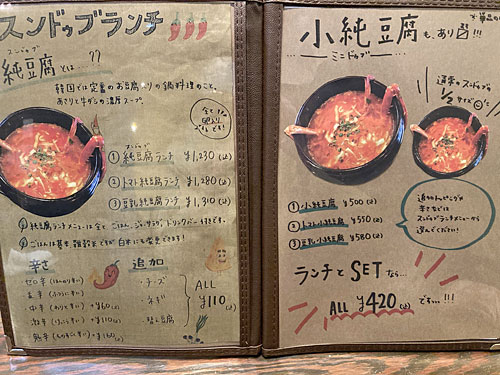 スンドゥブランチ
スンドゥブ
純豆腐とは…??
韓国では定番のお豆腐入りの鍋料理のこと。
あさりと牛ダシの濃厚スープ。
全て
です!
スンドゥブ
① 純豆腐ランチ ¥1,230(込)
② トマト純豆腐ランチ ¥1,280(込)
③ 豆乳純豆腐ランチ ¥1,310(込)
純豆腐ランチメニューは全て ごはん、ジョ サラダ、ドリンクバー付きです。
ごはんは基本 雑穀米ですが 白米にも変更できます!
辛さ
ゼロ辛(ほんのりキレイ)
・ 辛(ふつうにキレイ)
・ 中辛(わりとキレイ) +¥60(込)
・ 激辛(けっこうキレイ) +¥110(込)
・ 鬼辛( キレイ) +¥160(込)
追加
・チーズ
・ネギ
・替え豆腐
ALL
¥110(込)
小純豆腐も、あり〼!!!
ミニドゥブ
通常のスンドゥブの
1/2サイズ
① 小純豆腐 ¥500(込)
② トマト小純豆腐 ¥550(込)
③ 豆乳小純豆腐 ¥580(込)
追加トッピングや
辛さなどは
スンドゥブランチメニューから
選んでください!
ランチとSETなら…
ALL ¥420(込) です…!!!